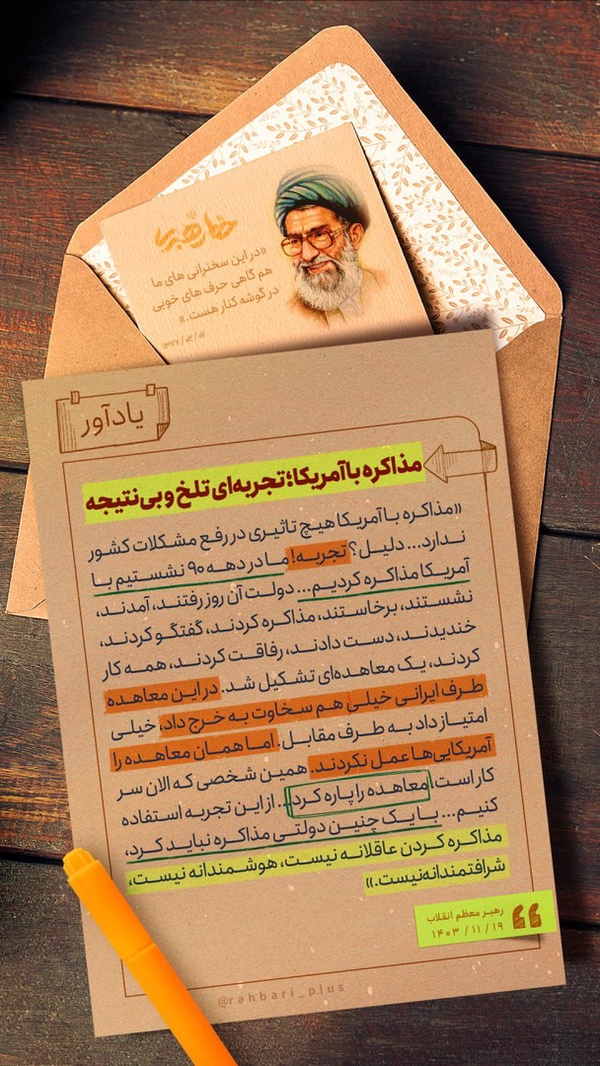 خارقهبر
«در این سخنرانی های ما
هم گاهی حرف های خوبی
در گوشه کنار هست.»
یادآور
مذاکره با آمریکا؛ تجربه‌ای تلخ و بی‌نتیجه
«مذاکره با آمریکا هیچ تاثیری در رفع مشکلات کشور
ندارد... دلیل؟ تجربه! ما در دهه ۹۰ نشستیم با
آمریکا مذاکره کردیم... دولت آن روز رفتند، آمدند،
نشستند، برخاستند، مذاکره کردند، گفتگو کردند،
خندیدند، دست دادند، رفاقت کردند، همه کار
کردند، یک معاهده‌ای تشکیل شد. در این معاهده
طرف ایرانی خیلی هم سخاوت به خرج داد، خیلی
امتیاز داد به طرف مقابل. اما همان معاهده را
آمریکایی‌ها عمل نکردند. همین شخصی که الان سر
کار است، معاهده را پاره کرد... از این تجربه استفاده
کنیم... با یک چنین دولتی مذاکره نباید کرد،
مذاکره کردن عاقلانه نیست، هوشمندانه نیست،
شرافتمندانه نیست.»
رهبر معظم انقلاب
۱۴۰۳ / ۱۱ / ۱۹
@rahbari_plus